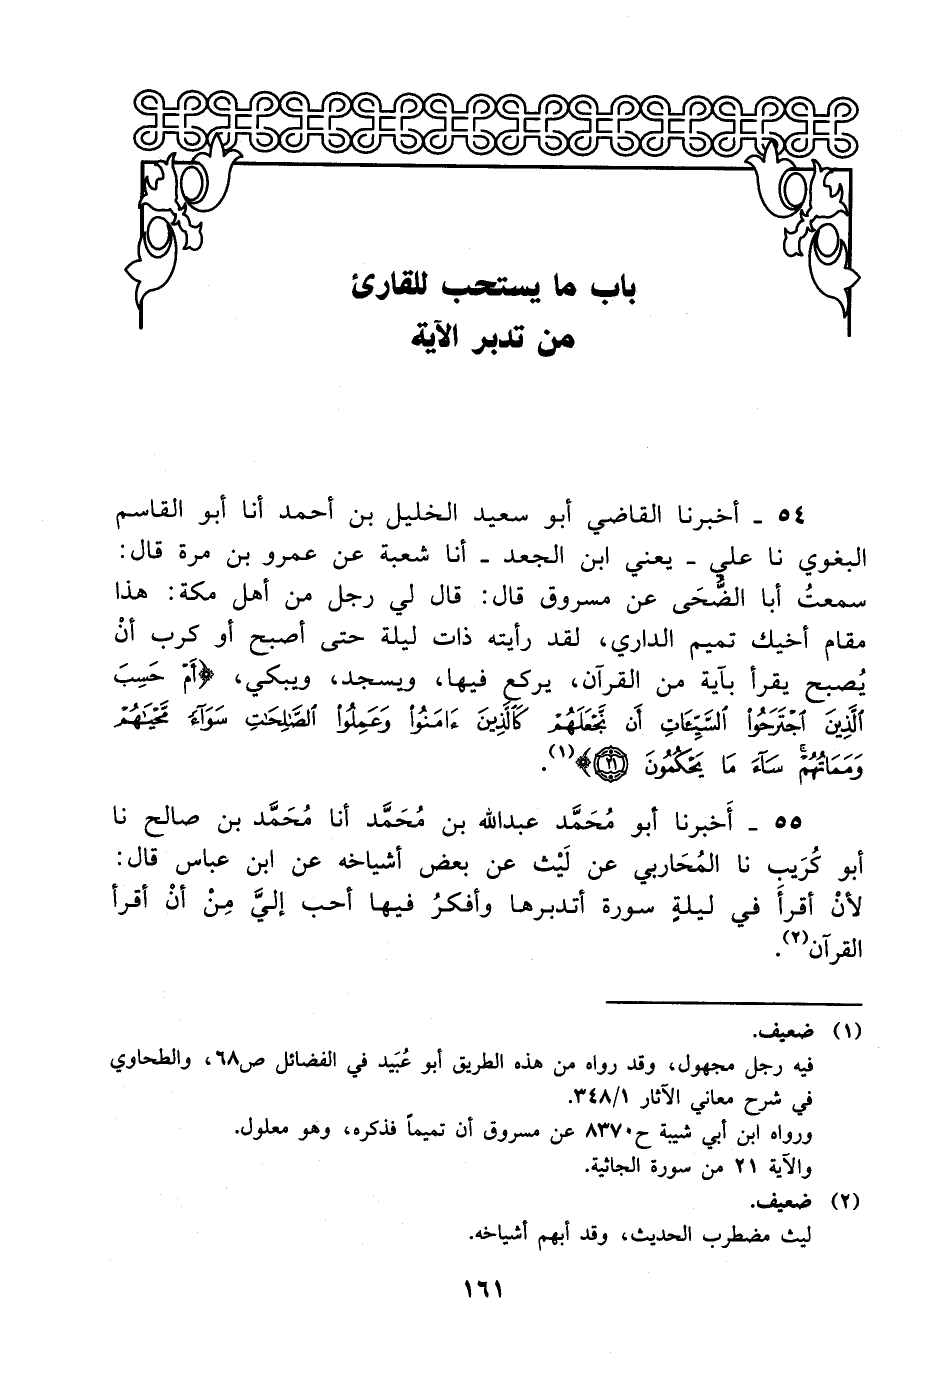 باب ما يستحب للقارئ
من تدبر الآية
٥٤ ـ أخبرنا القاضي أبو سعيد الخليل بن أحمد أنا أبو القاسم
البغوي نا علي ـ يعني ابن الجعد ـ أنا شعبة عن عمرو بن مرة قال:
سمعتُ أبا الضُّحَى عن مسروق قال: قال لي رجل من أهل مكة: هذا
مقام أخيك تميم الداري، لقد رأيته ذات ليلة حتى أصبح أو كرب أنْ
يُصبح يقرأ بآية من القرآن، يركع فيها، ويسجد، ويبكي، ﴿أَمْ حَسِبَ
ٱلَّذِينَ ٱجْتَرَحُوا۟ ٱلسَّيِّـَٔاتِ أَن نَّجْعَلَهُمْ كَٱلَّذِينَ ءَامَنُوا۟ وَعَمِلُوا۟ ٱلصَّـٰلِحَـٰتِ سَوَآءً مَّحْيَاهُمْ
وَمَمَاتُهُمْ ۚ سَآءَ مَا يَحْكُمُونَ ٢١﴾(١).
٥٥ ـ أَخبرنا أبو مُحَمَّد عبدالله بن مُحَمَّد أنا مُحَمَّد بن صالح نا
أبو كُرَيب نا المُحَاربي عن لَيْث عن بعض أشياخه عن ابن عباس قال:
لأنْ أقرأَ في ليلةٍ سورة أتدبرها وأفكرُ فيها أحب إليَّ مِنْ أنْ أقرأ
القرآن(٢).
(١) ضعيف.
فيه رجل مجهول، وقد رواه من هذه الطريق أبو عُبَيد في الفضائل ص٦٨، والطحاوي
في شرح معاني الآثار ٣٤٨/١.
ورواه ابن أبي شيبة ح٨٣٧٠ عن مسروق أن تميماً فذكره، وهو معلول.
والآية ٢١ من سورة الجاثية.
(٢) ضعيف.
ليث مضطرب الحديث، وقد أبهم أشياخه.
١٦١